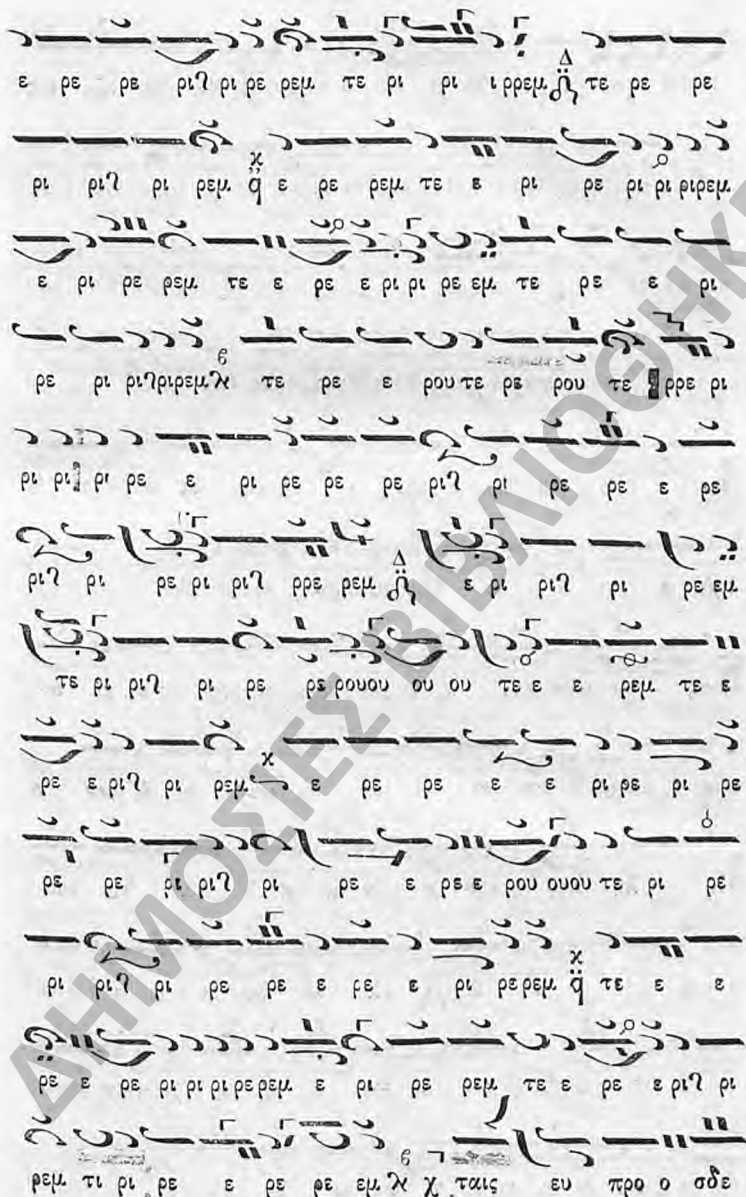 ε ρε ρε ρι ρε ρεμ τε ρι ρι ι ρρεμ Δ τε ρε ρε
ρι ρι ρεμ χ q ε ρε ρεμ τε ε ρι ρε ρι ρι ριρεμ
ε ρι ρε ρεμ τε ε ρε ε ρι ρι ρε εμ τε ρε ε ρι
ρε ρι τε ρε ε ρου τε ρε ρου τε ρρε ρι
ρι ρι ρι ρε ε ρι ρε ρε ρε ρι ρε ρε ε ρε
ρι ρε ρι ρρε ρεμ Δ ε ρι ρι ρε εμ
τε ρι ρι ρε ρε ρουου ου ου τε ε ε ρεμ τε ε
ρε ε ρι ρεμ χ ε ρε ρε ε ε ρι ρε ρι ρε
ρε ρε ρι ρι ρε ε ρε ε ρου ουου τε ρι ρε
ρι ρι ρε ρε ε ρε ε ρι ρερεμ χ q τε ε ε
ρε ε ρε ρι ρι ρι ρε ρεμ ε ρι ρε ρεμ τε ε ρε ε ρι
ρεμ τι ρι ρε ε ρε ρε εμ χ ταις ευ προ ο σδε
ΔΗΜΟΣΙΕΣ ΒΙΒΛΙΟΘΗΚΕ